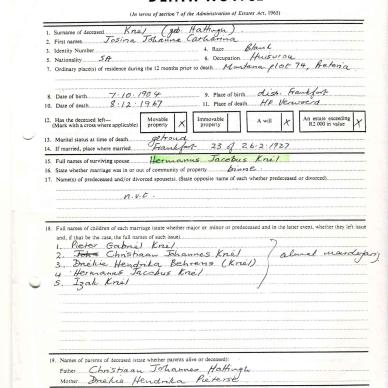 (In terms of section 7 of the Administration of Estates Act, 1965)
1. Surname of deceased Kriel (geb: Hattingh)
2. First names Josina Johanna Catharina
3. Identity Number 4. Race Blank
5. Nationality SA 6. Occupation Huisvrou
7. Ordinary place(s) of residence during the 12 months prior to death Montana plot 74, Pretoria
8. Date of birth 7-10-1904 9. Place of birth dist. Frankfort
10. Date of death 8-12-1967 11. Place of death HF Verwoerd
12. Has the deceased left:— (Mark with a cross where applicable) Movable property X Immovable property A will X An estate exceeding R2 000 in value X
13. Marital status at time of death getroud
14. If married, place where married Frankfort 23 of 26-2-1927
15. Full names of surviving spouse Hermanus Jacobus Kriel
16. State whether marriage was in or out of community of property binne
17. Name(s) of predeceased and/or divorced spouse(s). (State opposite name of each whether predeceased or divorced):
n.v.t.
18. Full names of children of each marriage (state whether major or minor or predeceased and in the latter event, whether they left issue
and, if that be the case, the full names of such issue)
1. Pieter Gabriel Kriel
2. Christiaan Johannes Kriel
3. Hendrika Behrens (Kriel)
4. Hermanus Jacobus Kriel
5. Izak Kriel
almal
19. Names of parents of deceased (state whether parents alive or deceased):
Father Christiaan Johannes Hattingh
Mother Hendrika